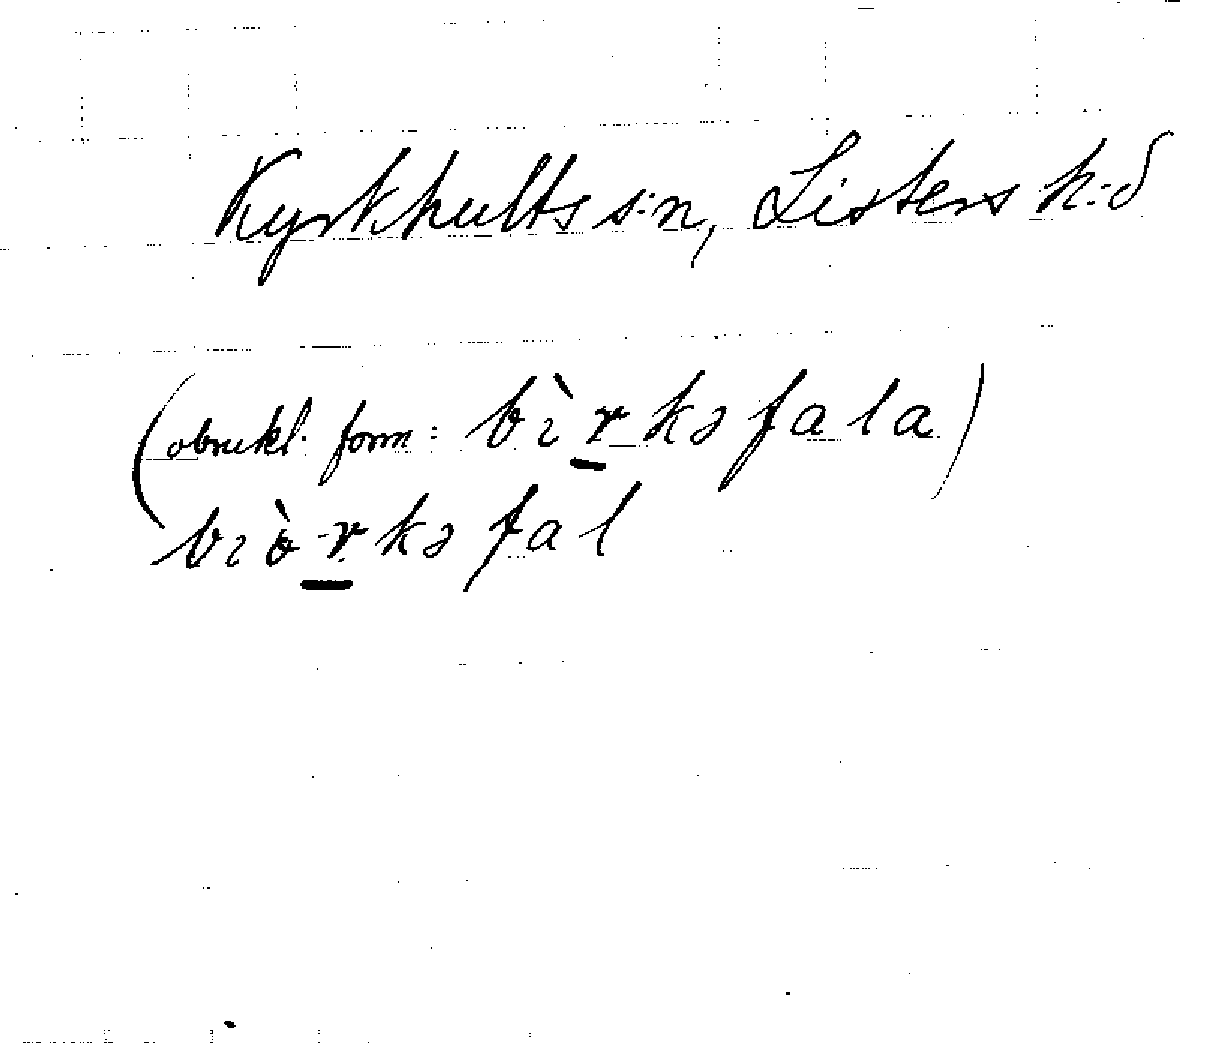 Kyrkhults s:n, Listers h:d
(obrukl. form: bìrkəfala)
bıòrkəfal